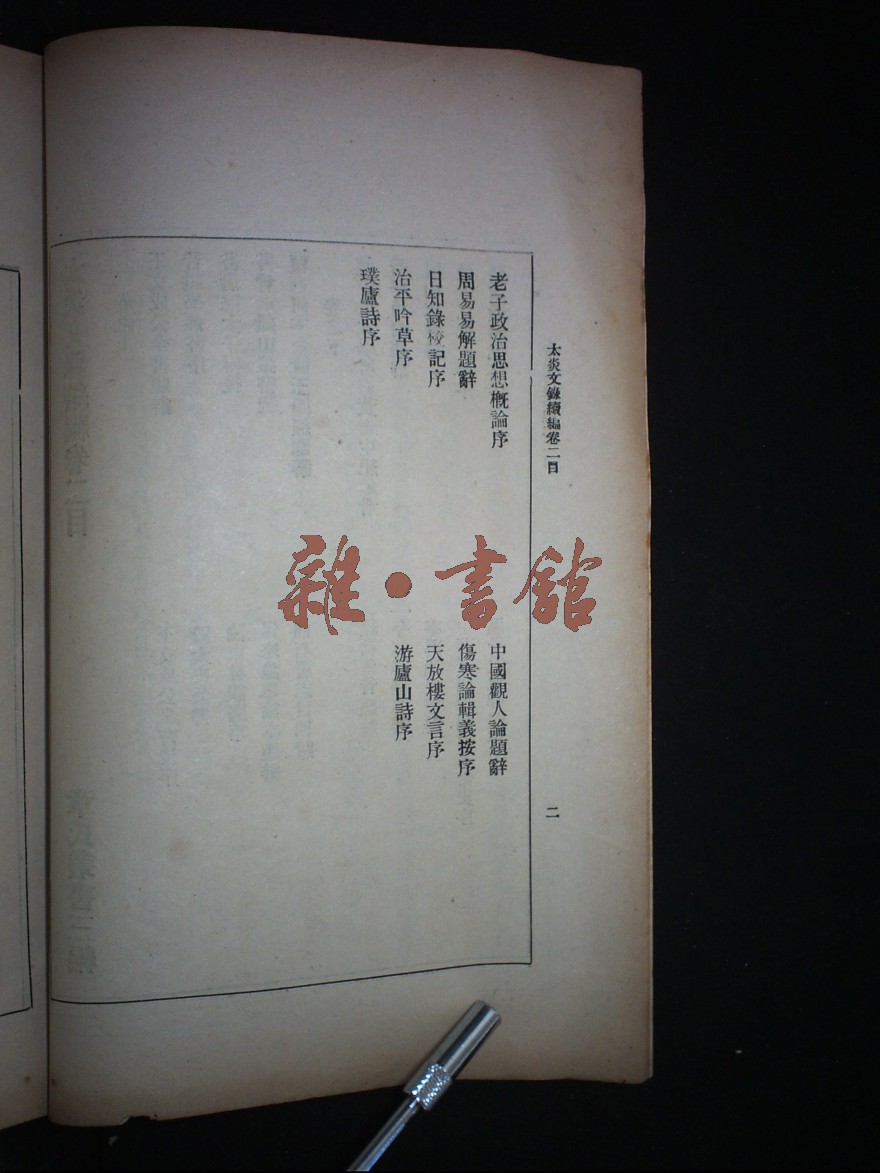 太炎文錄續編卷二目
二
老子政治思想概論序
中國觀人論題辭
周易易解題辭
傷寒論輯義按序
日知錄校記序
天放樓文言序
治平吟草序
游廬山詩序
璞廬詩序
雜·書館